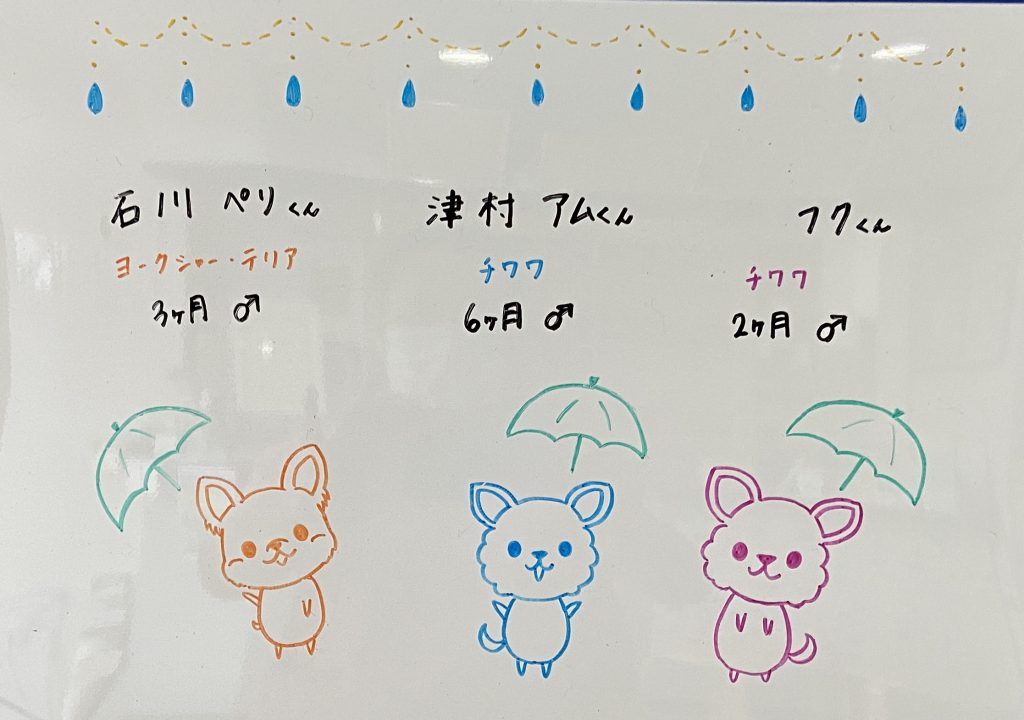 石川 ペリくん
ヨークシャー・テリア
3ヶ月 ♂
津村 アムくん
チワワ
6ヶ月 ♂
フクくん
チワワ
2ヶ月 ♂